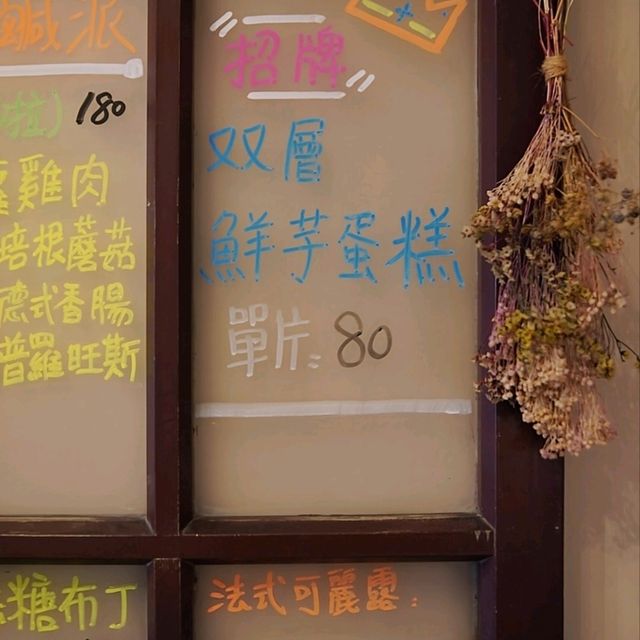 鹹派
180
雞肉
培根蘑菇
德式香腸
普羅旺斯
招牌
双層
鮮芋蛋糕
單片: 80
糖布丁
法式可麗露: